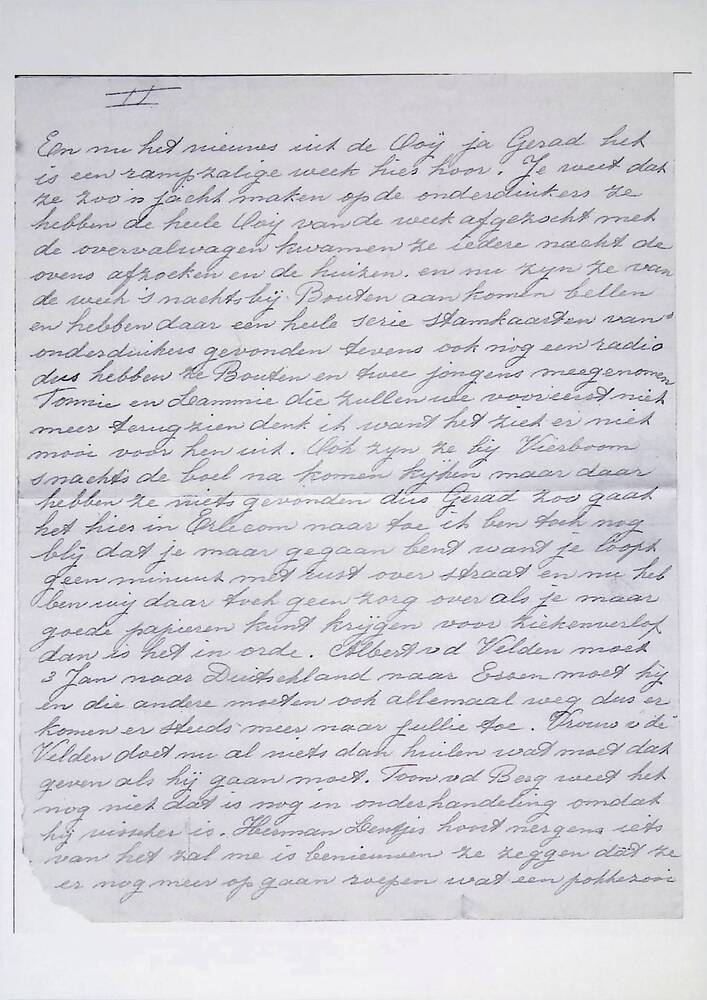 II
En nu het nieuws uit de Ooij ja Gerad het
is een rampzalige week hier hoor. Je weet dat
ze zoo'n jacht maken op de onderduikers ze
hebben de heele Ooij van de week afgezocht met
de overvalwagen kwamen ze iedere nacht de
ovens afzoeken en de huizen. en nu zyn ze van
de week 's nachts bij Bouten aan komen bellen
en hebben daar een heele serie stamkaarten van
onderduikers gevonden tevens ook nog een radio
dus hebben ze Bouten en twee jongens meegenomen
Tonnie en Lammie die zullen we vooreerst niet
meer terug zien denk ik want het ziet er niet
mooi voor hen uit. Ook zyn ze bij Vierboom
snachts de boel na komen kijken maar daar
hebben ze niets gevonden dus Gerad zoo gaat
het hier in Erlecom naar toe ik ben toch nog
blij dat je maar gegaan bent want je loopt
geen minuut met rust over straat en nu heb
ben wij daar toch geen zorg over als je maar
goede papieren kunt krijgen voor ziekenverlof
dan is het in orde. Albert v d Velden moet
3 Jan naar Duitschland naar Essen moet hij
en die andere moeten ook allemaal weg dus er
komen er steeds meer naar jullie toe. Vrouw v de
Velden doet nu al niets dan huilen wat moet dat
geven als hij gaan moet. Toon v d Berg weet het
nog niet dat is nog in onderhandeling omdat
hij visscher is. Herman Hentjes hoort nergens iets
van het zal me is benieuwen ze zeggen dat ze
er nog meer op gaan roepen wat een pokkezooi